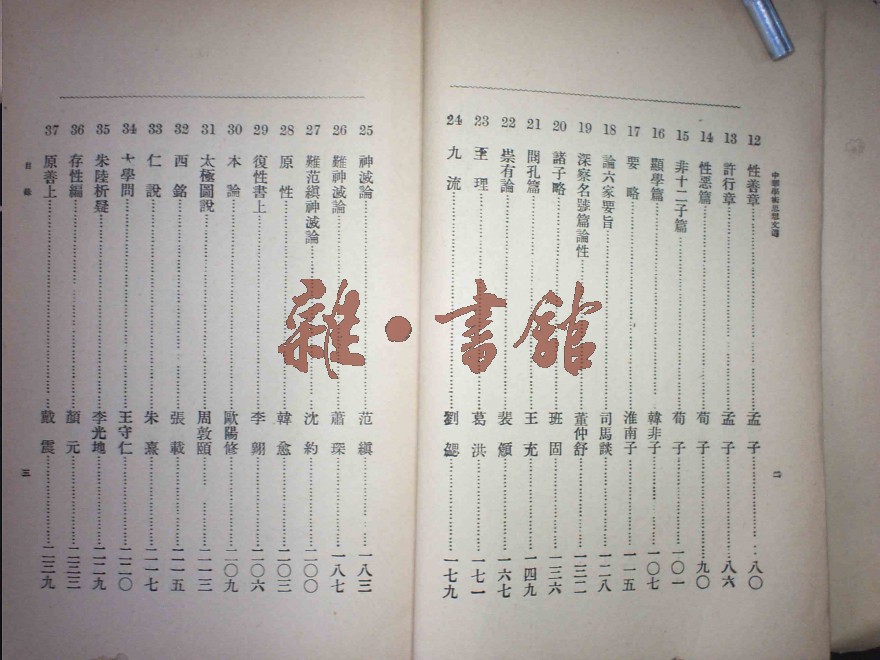 中華學術思想文選
12 性善章 孟子 八〇
13 許行章 孟子 八六
14 性惡篇 荀子 九〇
15 非十二子篇 荀子 一〇一
16 顯學篇 韓非子 一〇七
17 要略 淮南子 一一五
18 論六家要旨 司馬談 一二八
19 深察名號篇論性 董仲舒 一三二
20 諸子略 班固 一三六
21 問孔篇 王充 一四九
22 崇有論 裴頠 一六七
23 至理 葛洪 一七一
24 九流 劉勰 一七九
二
25 神滅論 范縝 一八三
26 難神滅論 蕭琛 一八七
27 難范縝神滅論 沈約 二〇〇
28 原性 韓愈 二〇三
29 復性書上 李翺 二〇六
30 本論 歐陽修 二〇九
31 太極圖說 周敦頤 二一三
32 西銘 張載 二一五
33 仁說 朱熹 二一七
34 大學問 王守仁 二二〇
35 朱陸析疑 李光地 二二九
36 存性編 顏元 二三三
37 原善上 戴震 二三九
目錄
三
雜·書館